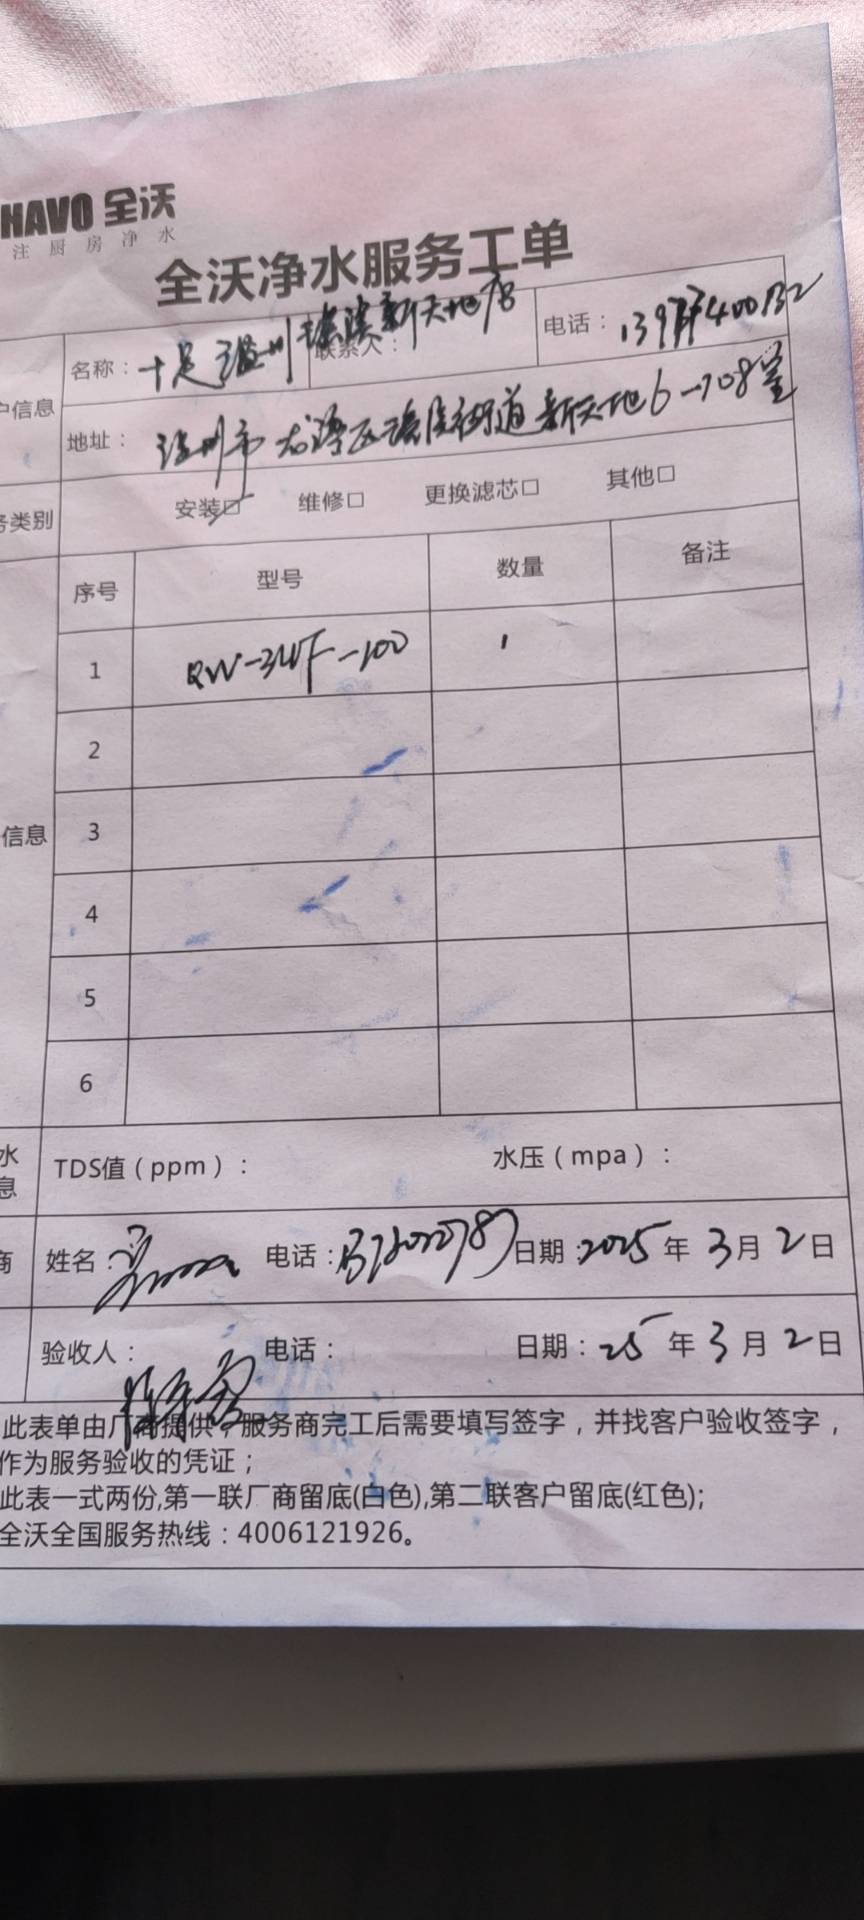 HAVO 全沃
注厨房净水
全沃净水服务工单
户信息 名称：十足温州瑶溪新天地店 联系人： 电话：
地址：温州市龙湾区瑶溪街道新天地6-108室
务类别 安装☑ 维修□ 更换滤芯□ 其他□
序号 型号 数量 备注
1 QW-3UF-100 1
2
信息 3
4
5
6
水 息 TDS值（ppm）： 水压（mpa）：
商 姓名： 电话： 日期：2025年3月2日
验收人： 电话： 日期：25年3月2日
此表单由厂商提供，服务商完工后需要填写签字，并找客户验收签字，
作为服务验收的凭证；
此表一式两份,第一联厂商留底(白色),第二联客户留底(红色);
全沃全国服务热线：4006121926。